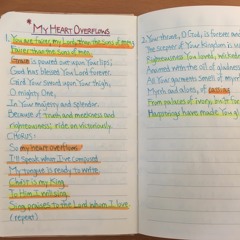 *My Heart Overflows
1. You are fairer, my Lord, than the sons of men,
Fairer than the sons of men.
Grace is poured over Your lips;
God has blessed You Lord forever.
Gird Your Sword upon Your thigh,
O mighty One,
In Your majesty and splendor.
Because of truth and meekness and
righteousness ride on victoriously.
CHORUS:
So my heart overflows.
I'll speak what I've composed
My tongue is ready to write
Christ is my King
To Him I will sing
Sing praises to the Lord whom I love
(repeat)
2. Your throne, O God, is forever
The scepter of Your kingdom is
Righteousness You loved,
Anointed with the oil of gladness
As Your garments smell of
Myrrh and aloes, of cassia
From palaces of ivory,
Harpstrings have made You